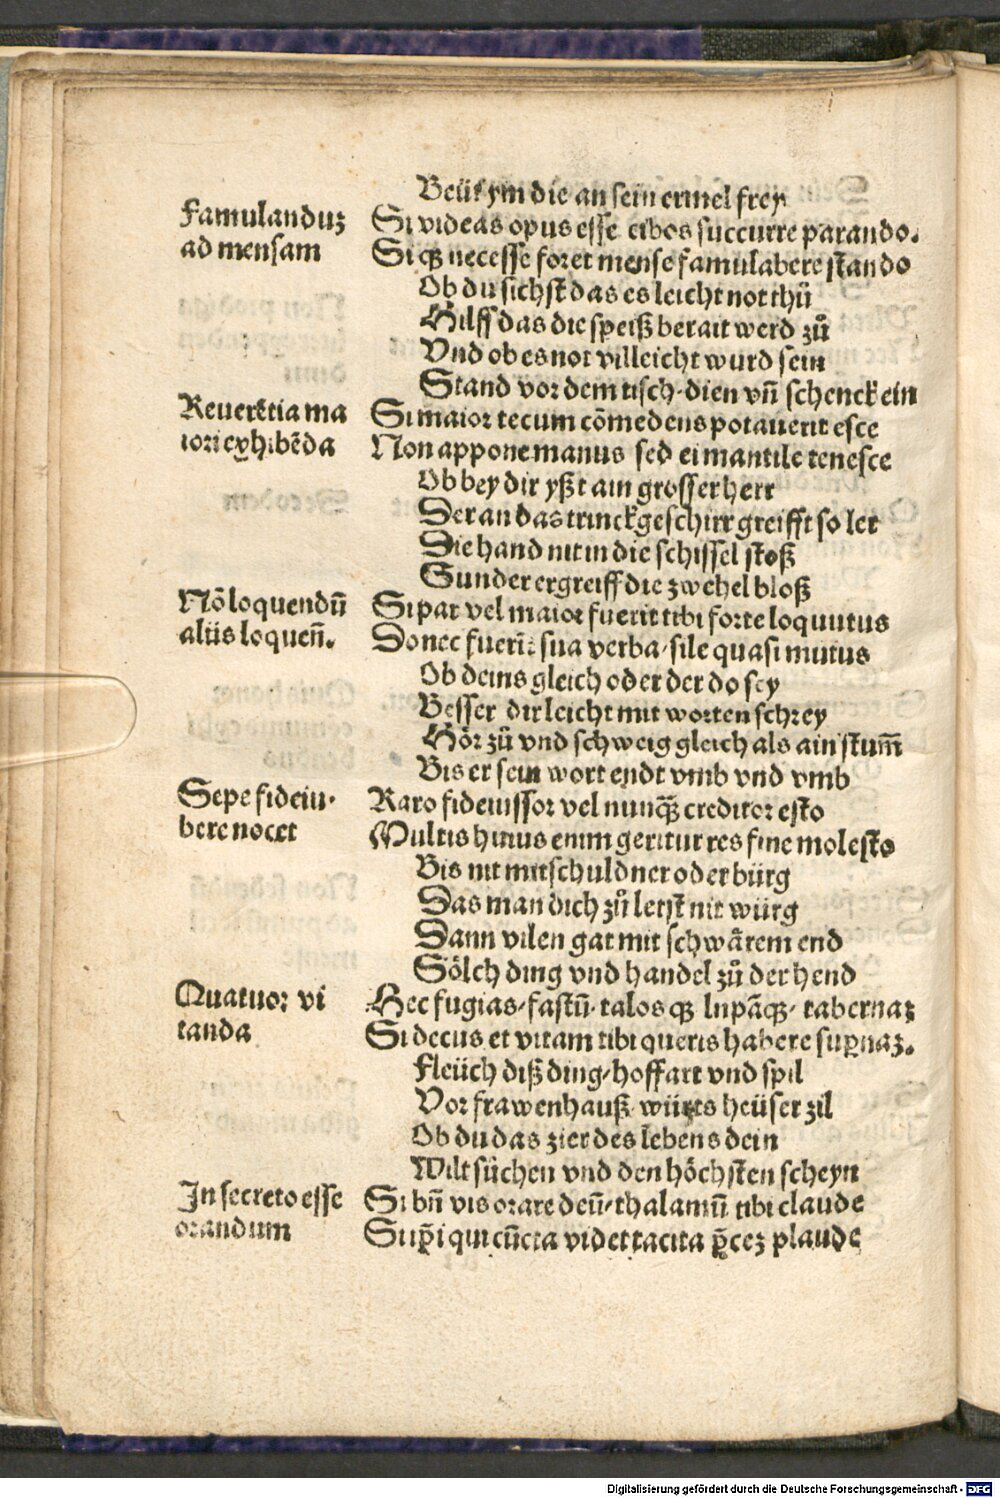 Beüt ym die an sein ermel frey
Famulanduʒ
ad mensam
Si videas opus esse cibos succurre parando.
Si qꝫ necesse foret mense famulabere stando
Ob du sichst das es leicht not thü
Hilff das die speiß berait werd zuͦ
Vnd ob es not villeicht wurd sein
Stand vor dem tisch· dien vn̄ schenck ein
Reuerētia ma
iori exhibēda
Si maior tecum cōmedens potauerit esce
Non appone manus sed ei mantile tenesce
Ob bey dir yßt ain grosser herr
Der an das trinckgeschirr greifft so ler
Die hand nit in die schissel stoß
Sunder ergreiff die zwehel bloß
Nō loquendū
aliis loquen̄.
Si par vel maior fuerit tibi forte loquutus
Donec fuerīt sua verba/ sile quasi mutus
Ob deins gleich oder der do sey
Besser dir leicht mit worten schrey
Hör zuͦ vnd schweig gleich als ain stum̄
Bis er sein wort endt vmb vnd vmb
Sepe fideiu·
bere nocet
Raro fideiussor vel nunqꝫ creditor esto
Multis huius enim geritur res fine molesto
Bis nit mitschuldner oder bürg
Das man dich zuͦ letst nit würg
Dann vilen gat mit schwärem end
Sölch ding vnd handel zuͦ der hend
Quatuor vi
tanda
Hec fugias/ fastū· talos qꝫ lupāqꝫ· tabernaʒ
Si decus et vitam tibi queris habere suꝑnaʒ.
Fleüch diß ding/ hoffart vnd spil
Vor frawenhauß würts heüser zil
Ob du das zier des lebens dein
Wilt süchen vnd den höchsten scheyn
In secreto esse
orandum
Si bn̄ vis orare deū/ thalamū tibi claude
Suꝑi qui cūcta videt tacita p̄ceʒ plaude
Digitalisierung gefördert durch die Deutsche Forschungsgemeinschaft - DFG